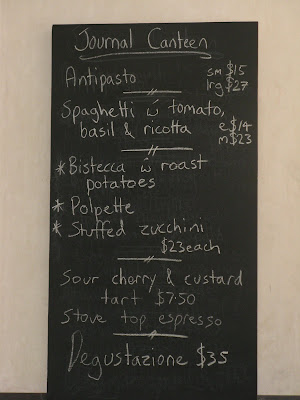 Journal Canteen
Antipasto sm $15
lrg $27
Spaghetti w tomato,
basil & ricotta e $14
m $23
* Bistecca w roast
potatoes
* Polpette
* Stuffed zucchini
$23 each
Sour cherry & custard
tart $7.50
Stove top espresso
Degustazione $35